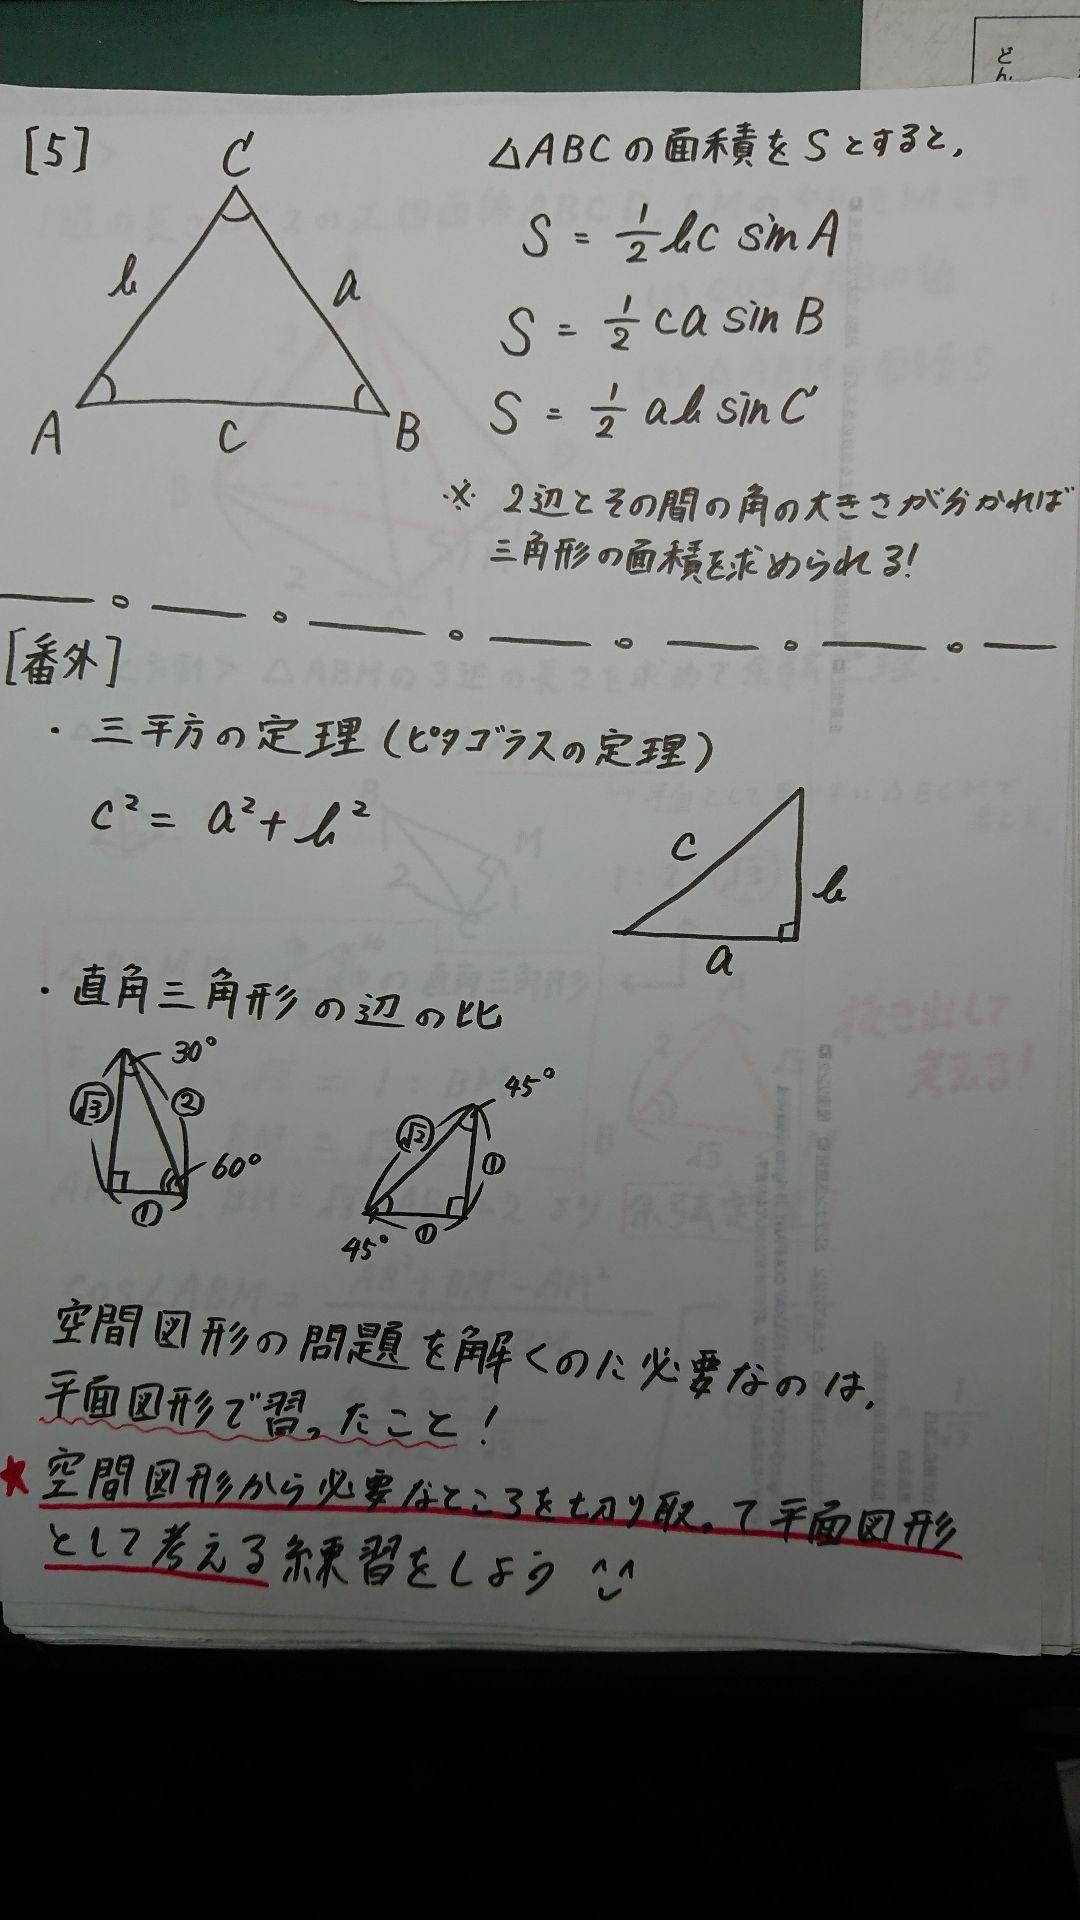 どん
[5]
C
b
a
A
c
B
△ABCの面積をSとすると,
S = 1/2 bc sinA
S = 1/2 ca sinB
S = 1/2 ab sinC
※ 2辺とその間の角の大きさが分かれば
三角形の面積を求められる!
[番外]
・三平方の定理(ピタゴラスの定理)
c² = a² + b²
c
b
a
・直角三角形の辺の比
30°
√3
②
60°
①
45°
√2
①
45°
①
空間図形の問題を解くのに必要なのは,
平面図形で習ったこと!
★空間図形から必要なところを切り取って平面図形
として考える練習をしよう ^^